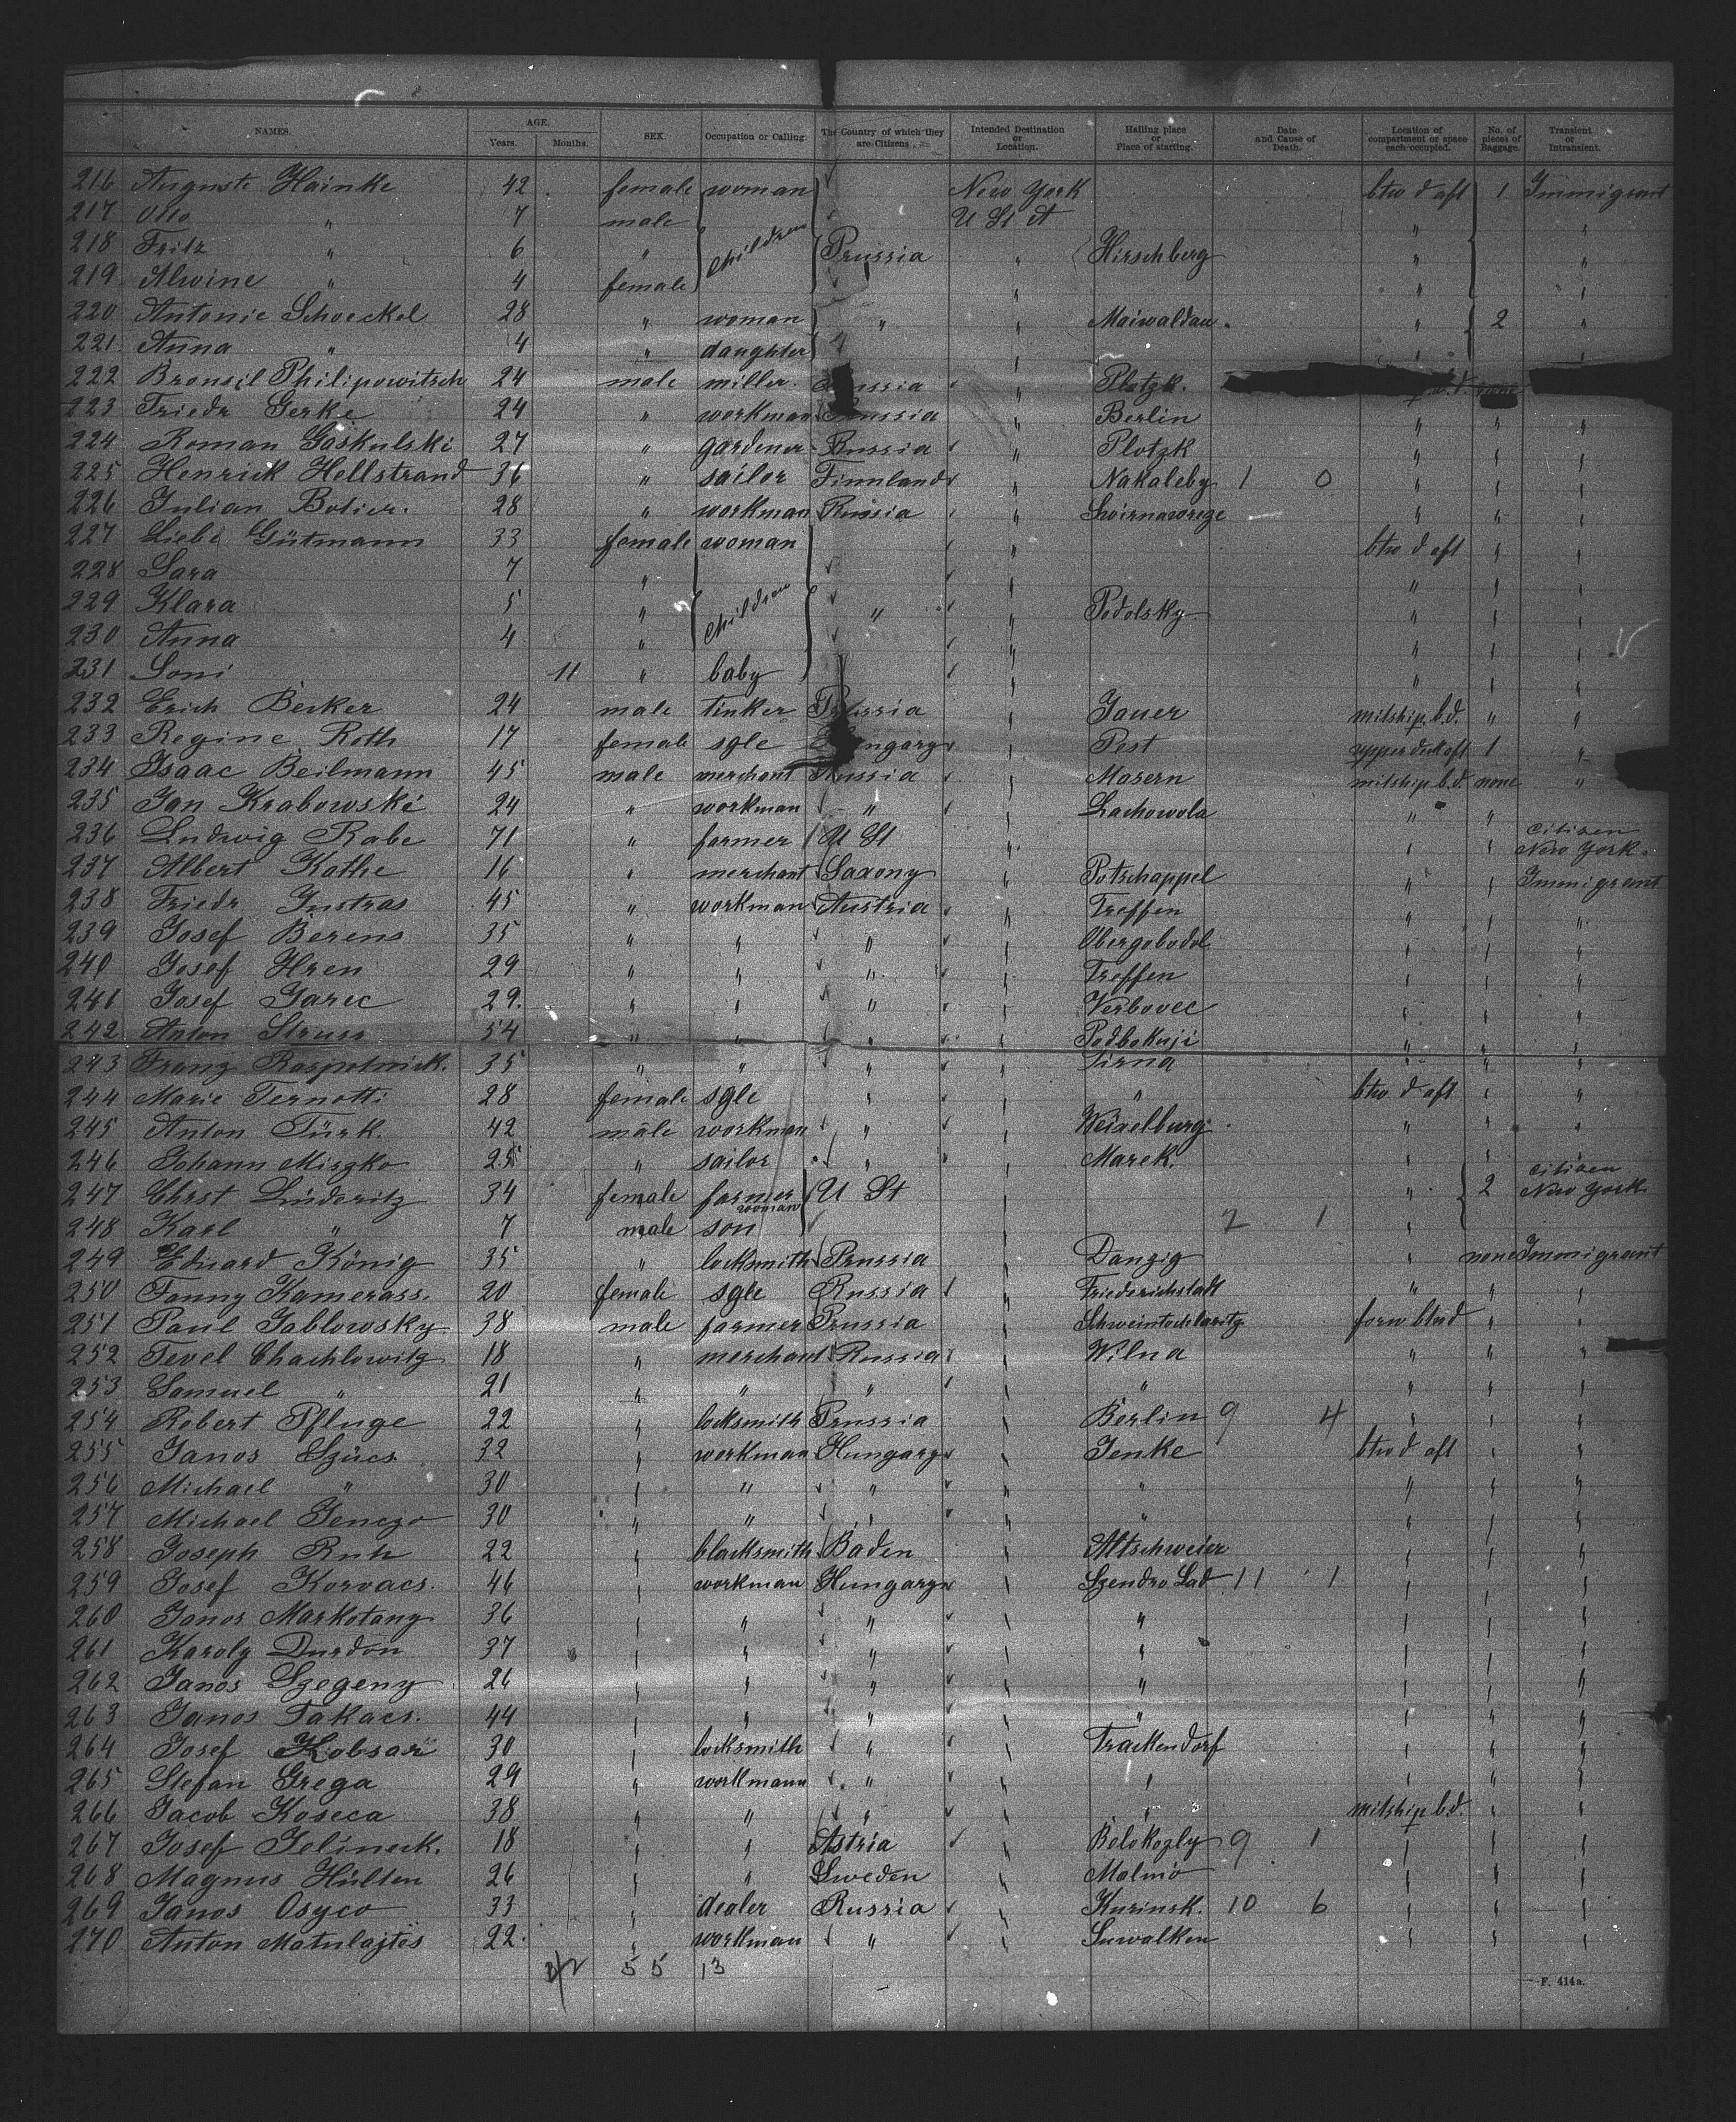 NAMES. AGE. Years. Months. SEX. Occupation or Calling. The Country of which they are Citizens. Intended Destination or Location. Hailing place or Place of starting. Date and Cause of Death. Location of compartment or space each occupied. No. of pieces of Baggage. Transient or Intransient.
216 Auguste Hainke 42 female woman New York btw d aft 1 Immigrant
217 Otto " 7 male U St A " "
218 Fritz " 6 " children Prussia " Hirschberg " "
219 Alwine " 4 female " " "
220 Antonie Schoeckel 28 " woman " " Maiwaldau. " 2 "
221 Anna " 4 " daughter " " "
222 Bronsil Philipowitsch 24 male miller. Russia " Plotzk.
223 Friedr Gerke 24 " workman Prussia " Berlin " " "
224 Roman Gaskulski 27 " gardener Russia " Plotzk " " "
225 Henrick Hellstrand 36 " sailor Finnland " Nakaleby 1 0 " " "
226 Julian Botier. 28 " workman Russia " " " "
227 Liebe Gütmann 33 female woman " btw d aft " "
228 Sara 7 " " " " "
229 Klara 5 " children " " Podolsky " " "
230 Anna 4 " " " " "
231 Soni 11 " baby " " " "
232 Erich Becker 24 male tinker Prussia " Jauer mitship b.d. " "
233 Regine Roth 17 female sgle Hungary " Pest upper deck aft 1 "
234 Isaac Beilmann 45 male merchant Russia " Masern mitship b.d. none "
235 Jan Krabowski 24 " workman " " Lachowola " "
236 Ludwig Rabe 71 " farmer U St " " " citizen New York.
237 Albert Kathe 16 " merchant Saxony " Potschappel " " Immigrant
238 Friedr Instras 45 " workman Austria " Treffen " " "
239 Josef Berens 35 " " " " Obergobodol " " "
240 Josef Hren 29 " " " " Treffen " " "
241 Josef Jarec 29. " " " " Verbovec " " "
242 Anton Struss 54 " " " " Podbokuji " " "
243 Franz Raspotnick. 35 " " " " Sirna " " "
244 Marie Ternotti 28 female sgle " " " btw d aft " "
245 Anton Türk. 42 male workman " " Weixelburg " " "
246 Johann Miszko 25 " sailor " " Marek. " "
247 Chrst Lüderitz 34 female farmer woman U St " " 2 citizen New York
248 Karl " 7 male son " 2 1 "
249 Eduard König 35 " locksmith Prussia " Danzig " none Immigrant
250 Fanny Kamerass. 20 female sgle Russia " Friederichstadt " " "
251 Paul Jablowsky 38 male farmer Prussia " forw btwd " "
252 Tevel Chachlowitz 18 " merchant Russia " Wilna " " "
253 Samuel " 21 " " " " " " " "
254 Robert Pfluge 22 " locksmith Prussia " Berlin 9 4 " " "
255 Janos Szücs 32 " workman Hungary " Jenke btw d aft " "
256 Michael " 30 " " " " " " " "
257 Michael Jenczo 30 " " " " " " " "
258 Joseph Ruh 22 " blacksmith Baden " Altschweier " " "
259 Josef Korvacs. 46 " workman Hungary " Szendro Lad 11 1 " " "
260 Janos Markotany 36 " " " " " " " "
261 Karoly Durdon 37 " " " " " " " "
262 Janos Szegeny 26 " " " " " " " "
263 Janos Takacs. 44 " " " " " " " "
264 Josef Kobsar 30 " locksmith " " Trackendorf " " "
265 Stefan Grega 29 " workmann " " " " " "
266 Jacob Koseca 38 " " " " " mitship b.d. " "
267 Josef Jelineck. 18 " " Astria " Belokozly 9 1 " " "
268 Magnus Hülten 26 " " Sweden " Malmö " " "
269 Janos Osyco 33 " dealer Russia " Kurinsk. 10 6 " " "
270 Anton Matulajtes 22. " workman " " Suwalken " " "
55 13
F. 414a.